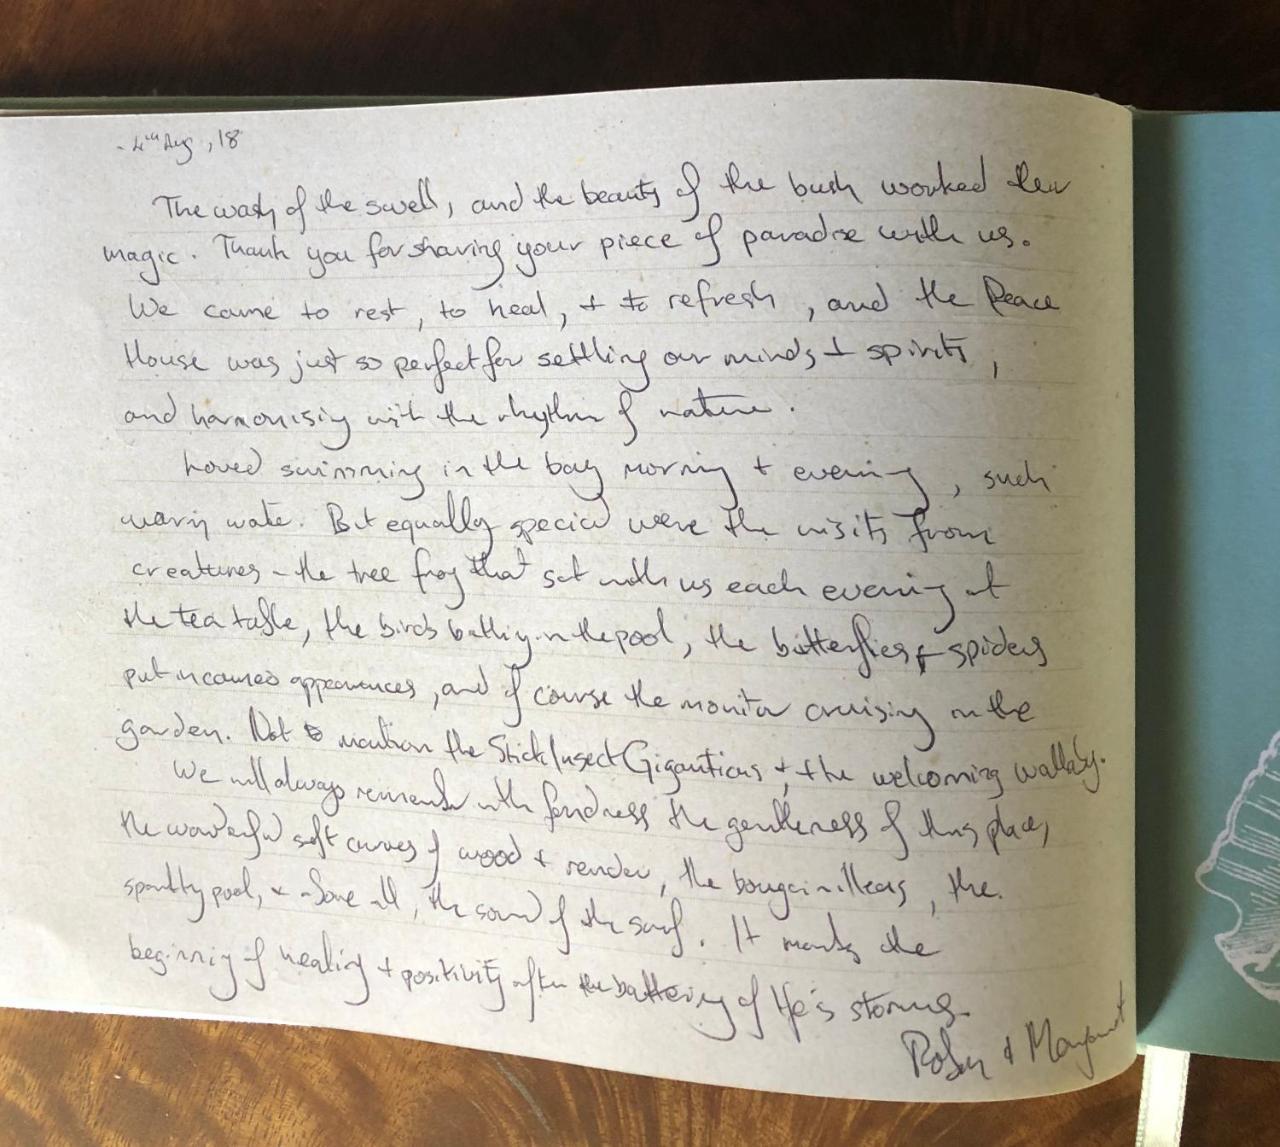 - 4th Aug, 18
The wash of the swell, and the beauty of the bush worked their
magic. Thank you for sharing your piece of paradise with us.
We came to rest, to heal, + to refresh, and the Peace
House was just so perfect for settling our minds + spirits,
and harmonising with the rhythm of nature.
Loved swimming in the bay morning + evening, such
warm water. But equally special were the visits from
creatures - the tree frog that sat with us each evening at
the tea table, the birds bathing in the pool, the butterflies + spiders
put in cameo appearances, and of course the monitor cruising in the
garden. Not to mention the Stick Insect Giganticus + the welcoming wallaby.
We will always remember with fondness the gentleness of this place,
the wonderful soft curves of wood + render, the bougainvilleas, the
sparkly pool, + above all, the sound of the surf. It marks the
beginning of healing + positivity after the battering of life's storms.
+ Margaret